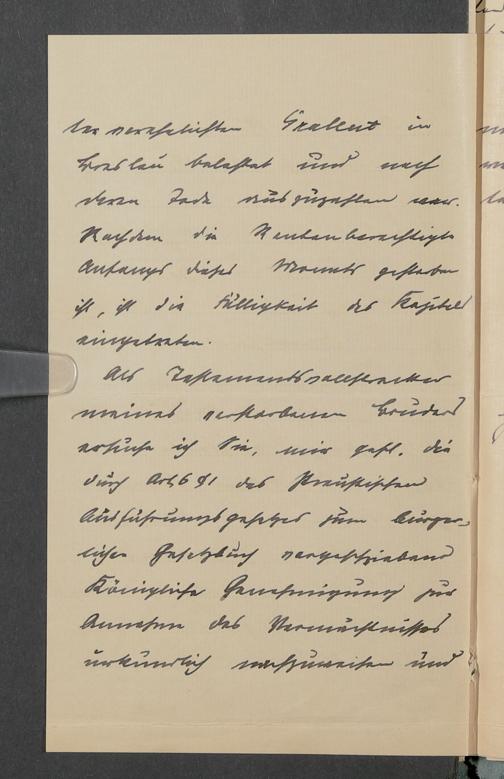 der verehelichten Grallert in
Breslau belastet und nach
deren Tode auszuzahlen war.
Nachdem die Rentenberechtigte
Anfangs dieses Monats gestorben
ist, ist die Fälligkeit des Kapitals
eingetreten.
Als Testamentsvollstrecker
meines verstorbenen Bruders
ersuche ich Sie, mir gefl. die
durch Art. 6 § 1 des Preußischen
Ausführungsgesetzes zum Bürger-
lichen Gesetzbuch vorgeschriebene
Königliche Genehmigung zur
Annahme des Vermächtnisses
urkundlich nachzuweisen und